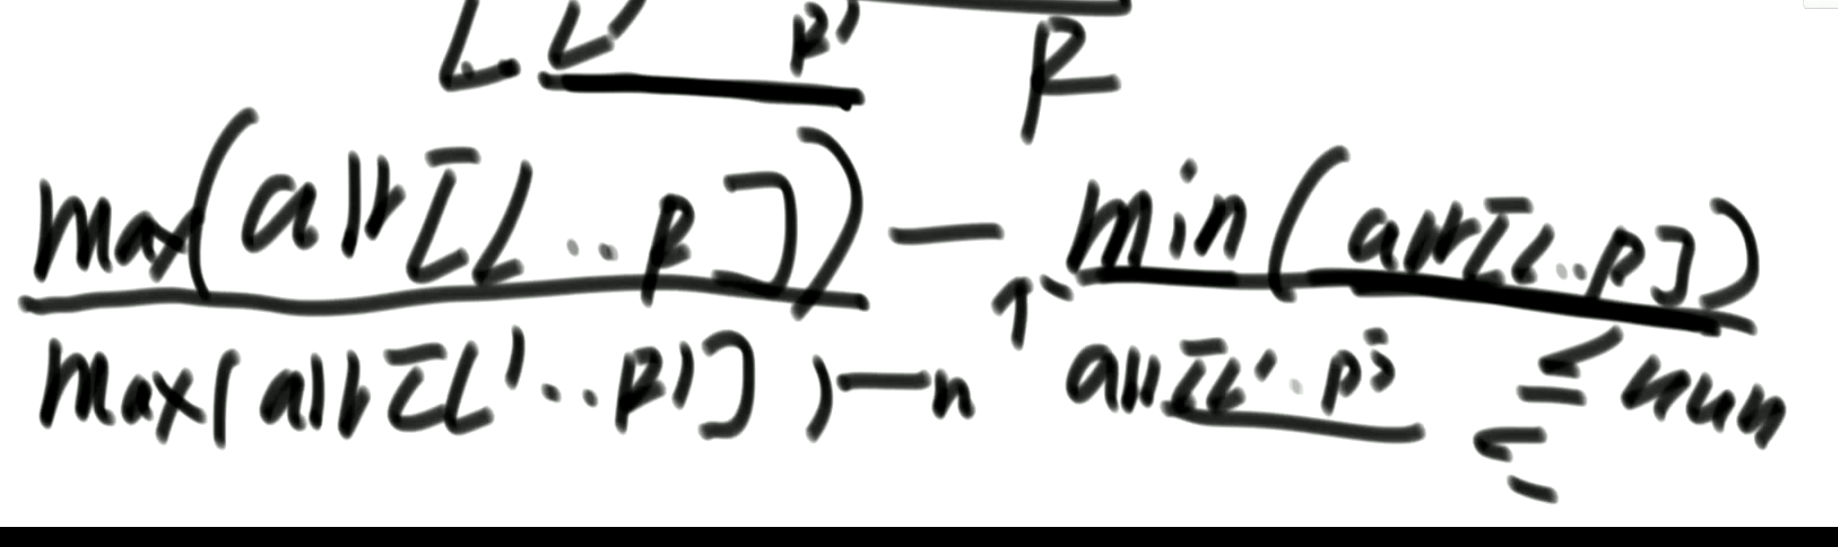 L L' R' R
max(arr[L..R]) - min(arr[L..R])
max(arr[L'..R']) - arr[L'..R'] ≤ num